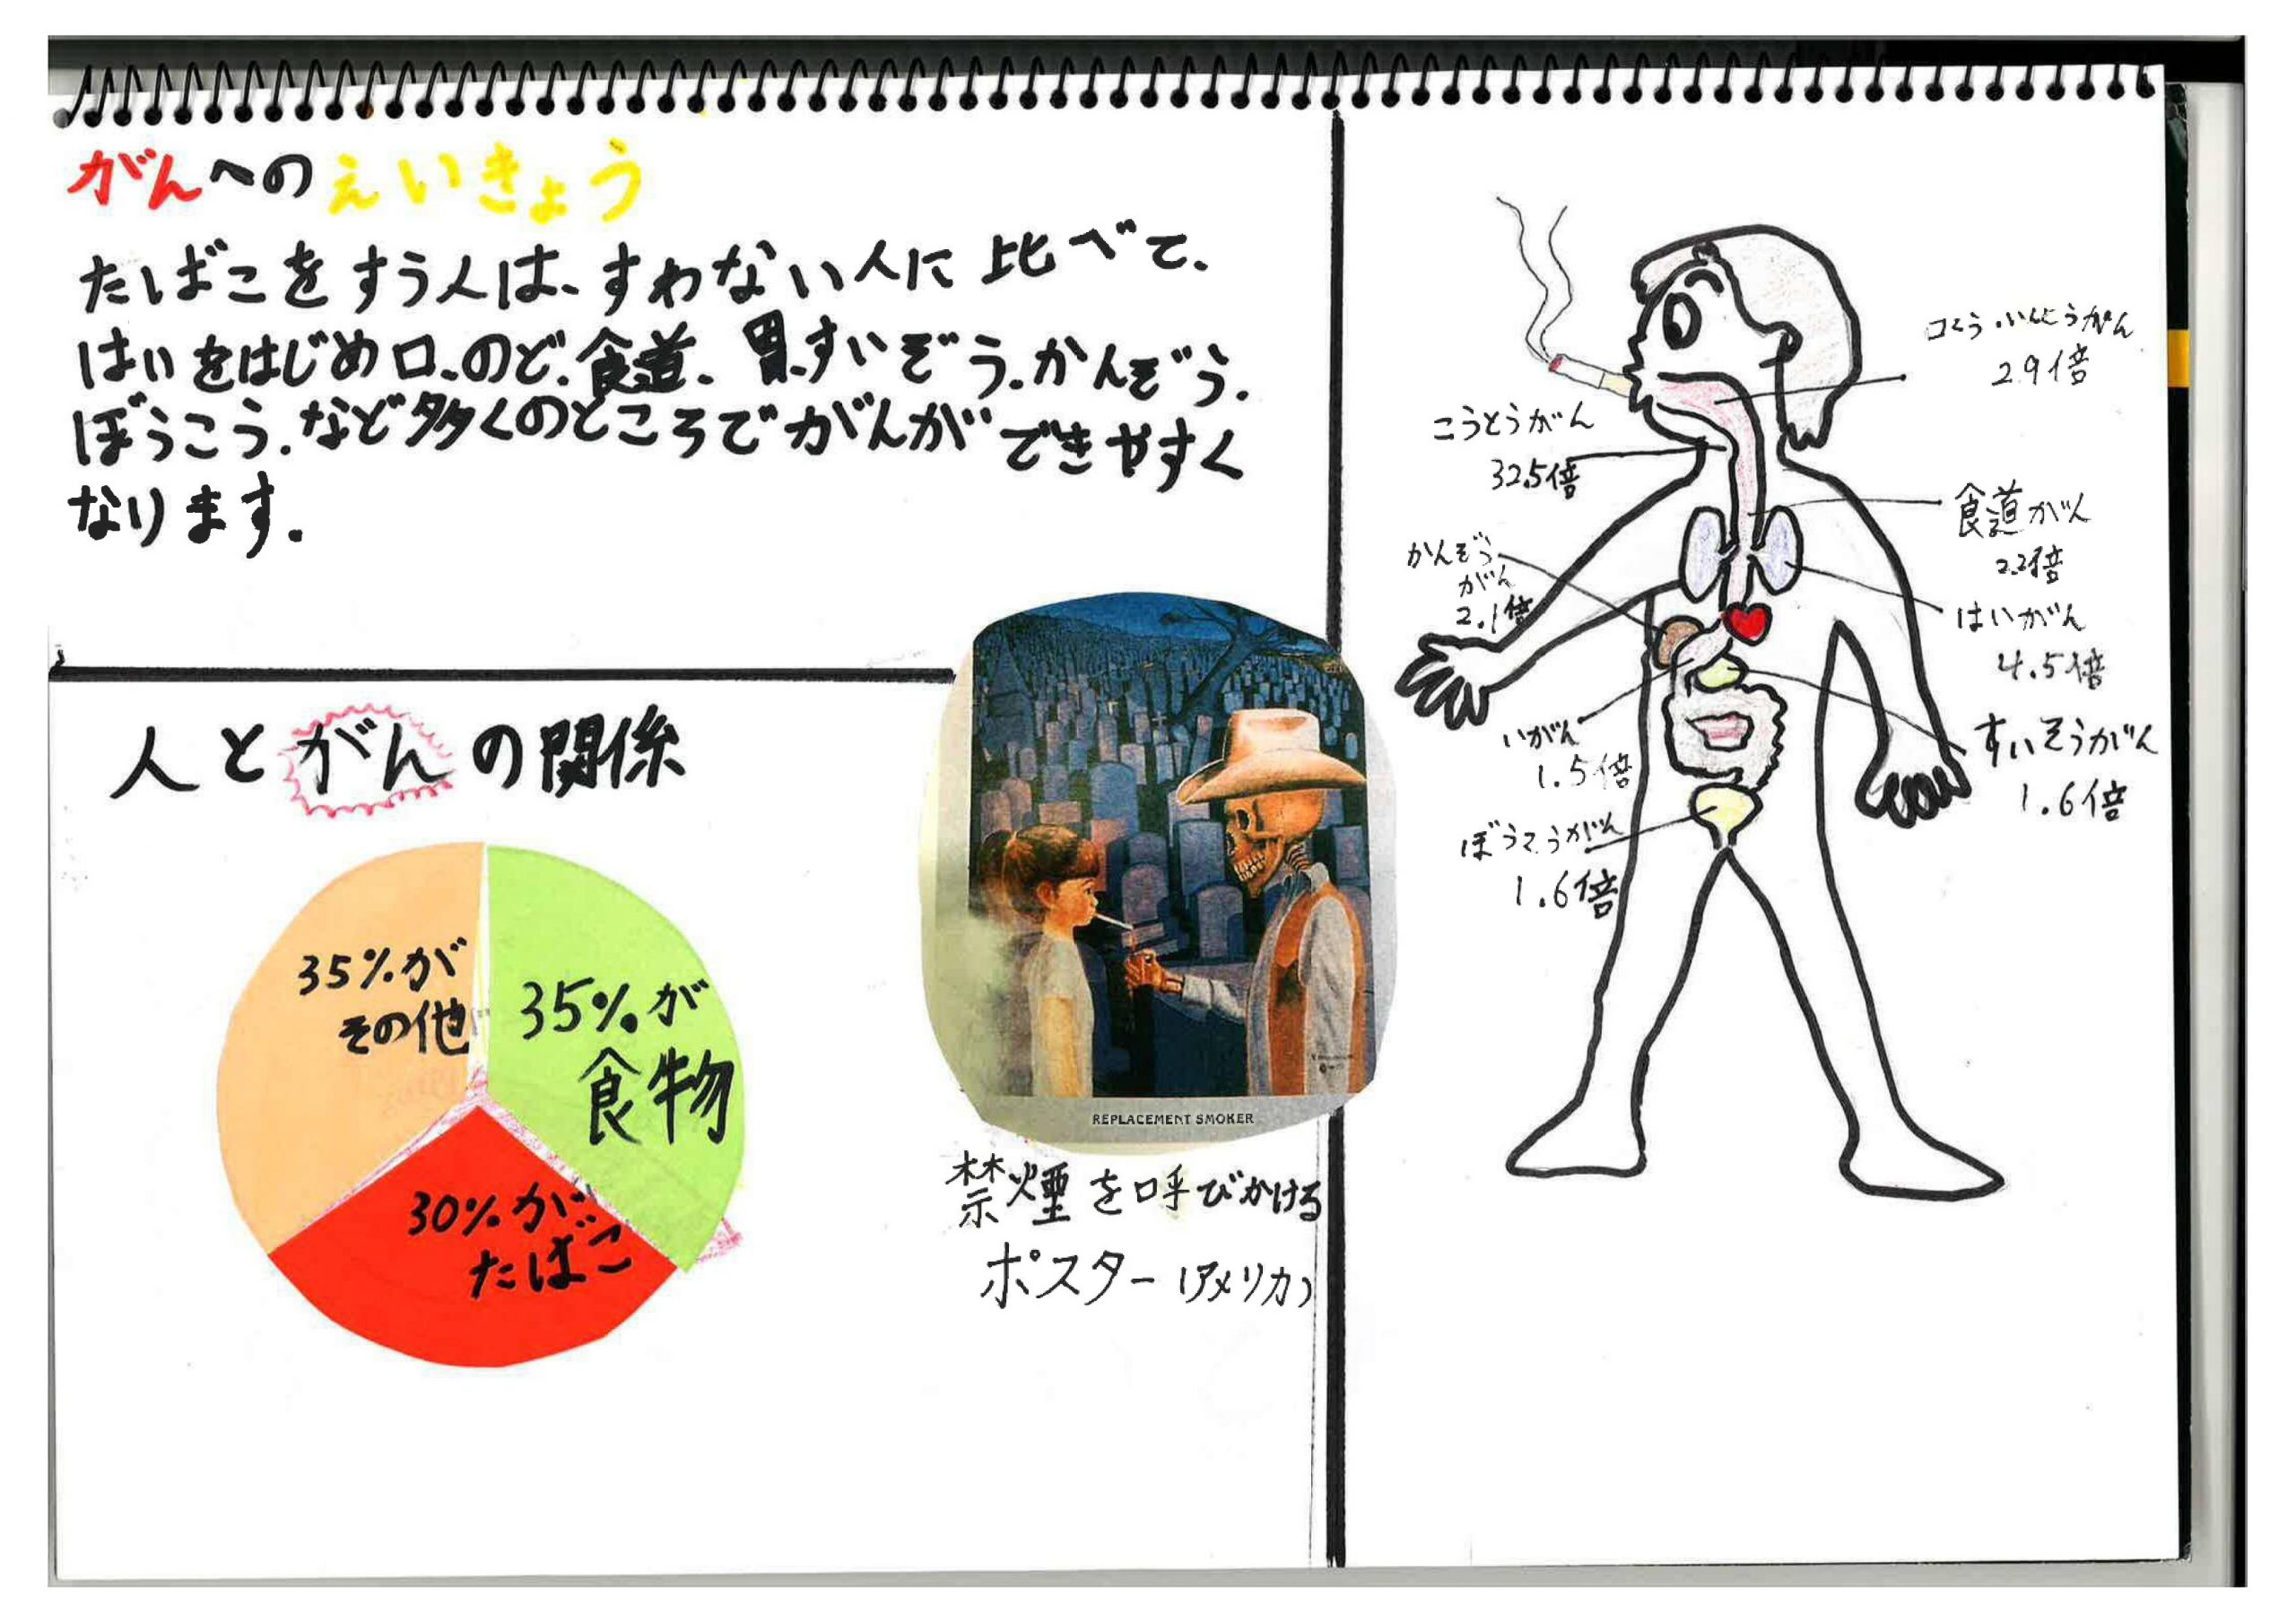 がんへのえいきょう
たばこをすう人は、すわない人に比べて、
はいをはじめ口、のど、食道、胃、すいぞう、かんぞう、
ぼうこう、など多くのところでがんができやすく
なります。
人とがんの関係
35%が
その他
35%が
食物
30%が
たばこ
REPLACEMENT SMOKER
禁煙を呼びかける
ポスター(アメリカ)
がん
2.9倍
こうとうがん
32.5倍
食道がん
2.2倍
かんぞう
がん
2.1倍
はいがん
4.5倍
いがん
1.5倍
すいぞうがん
1.6倍
ぼうこうがん
1.6倍